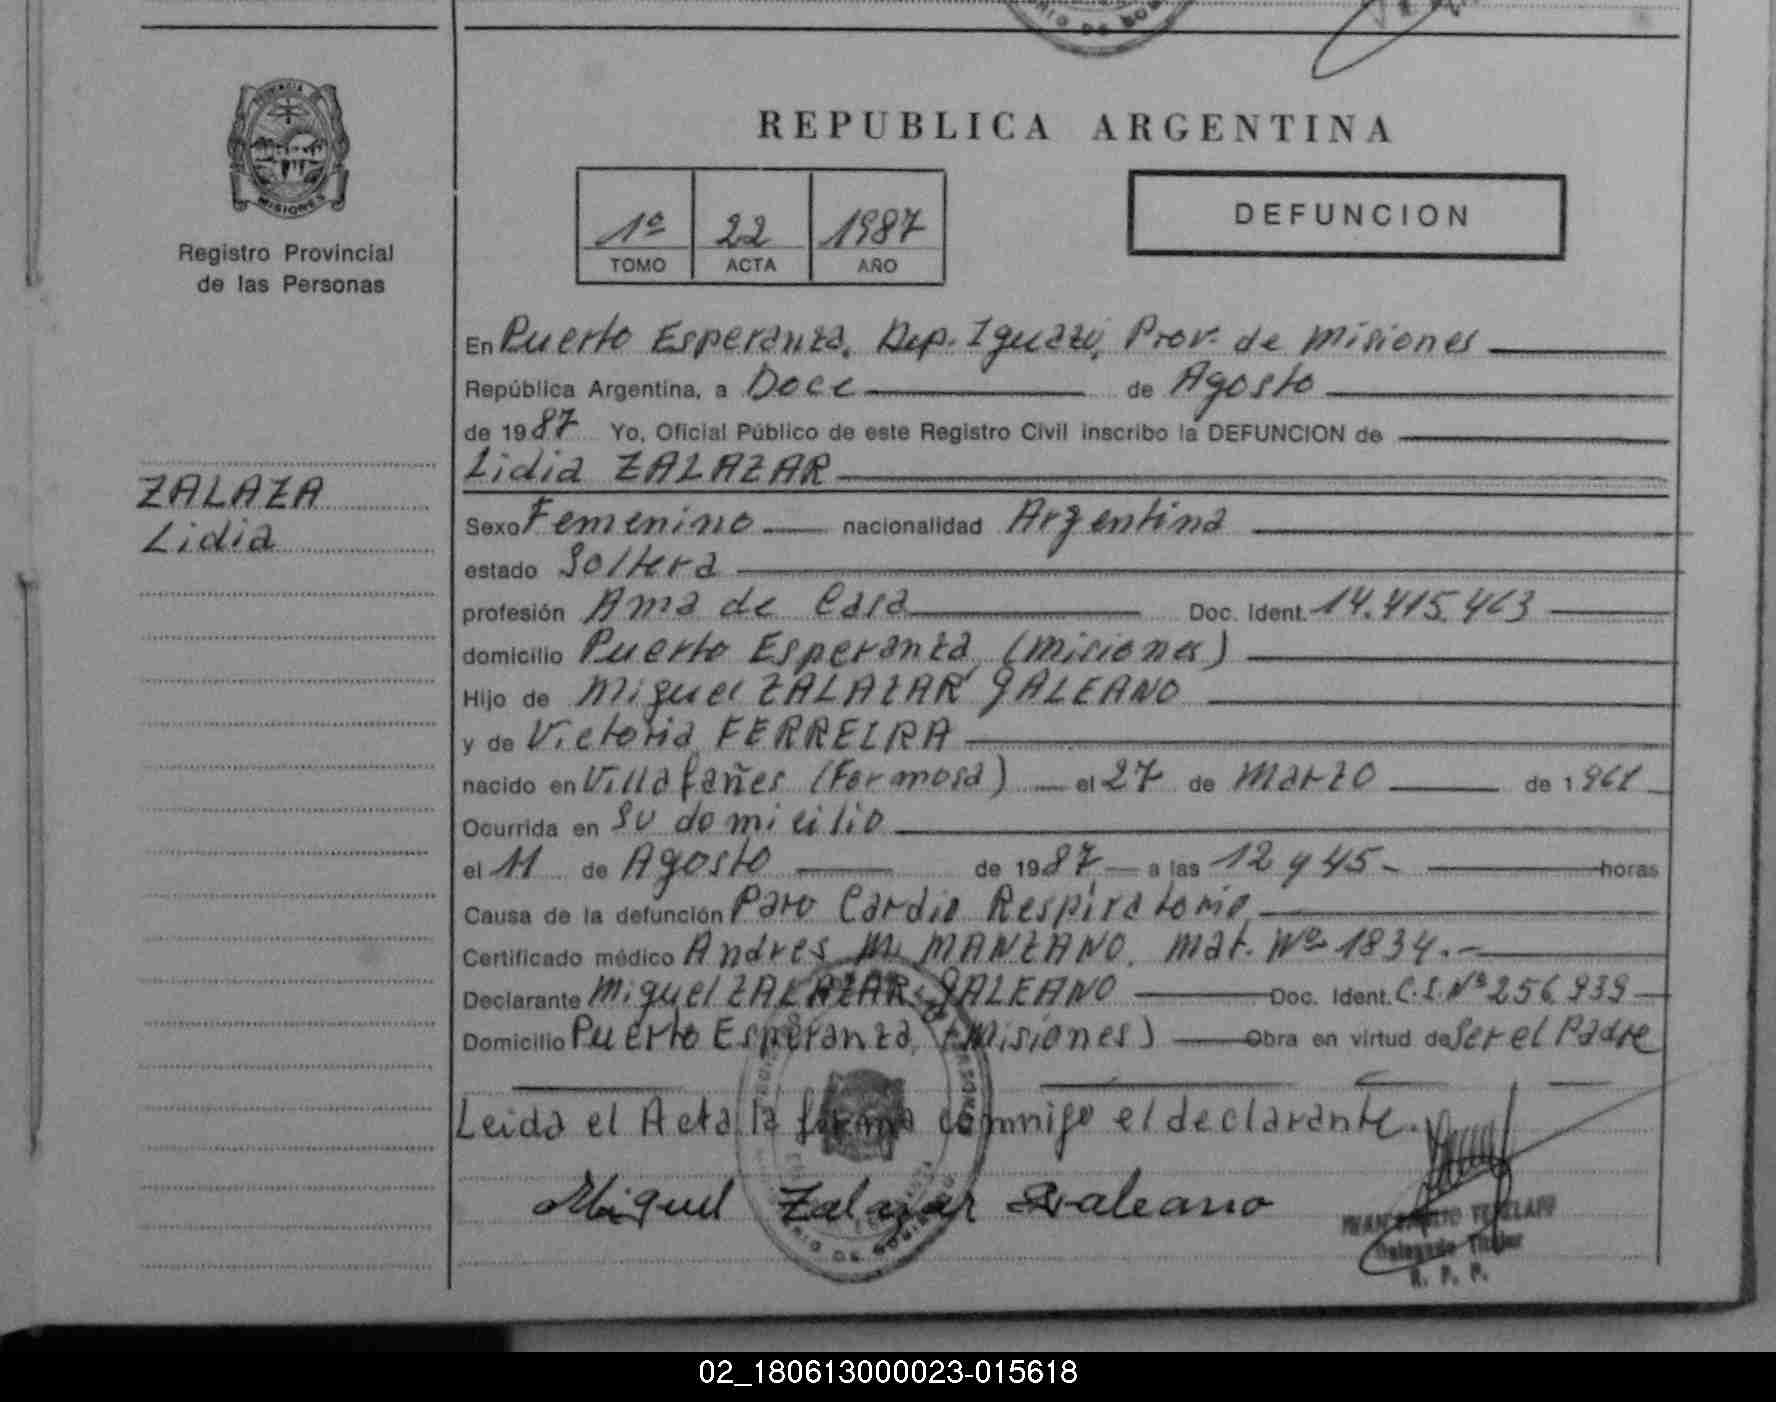 REPUBLICA ARGENTINA
PROVINCIA DE
MISIONES
Registro Provincial
de las Personas
1º 22 1987
TOMO ACTA AÑO
DEFUNCION
ZALAZA
Lidia
En Puerto Esperanza, Dep. Iguazú, Prov. de Misiones
República Argentina, a Doce de Agosto
de 1987 Yo, Oficial Público de este Registro Civil inscribo la DEFUNCION de
Lidia ZALAZAR
Sexo Femenino nacionalidad Argentina
estado Soltera
profesión Ama de Casa Doc. Ident. 14.415.463
domicilio Puerto Esperanza, (Misiones)
Hijo de Miguel ZALAZAR GALEANO
y de Victoria FERREIRA
nacido en Villafañes (Formosa) el 27 de Marzo de 1961
Ocurrida en Su domicilio
el 11 de Agosto de 1987 a las 12 y 45- horas
Causa de la defunción Paro Cardio Respiratorio,
Certificado médico Andres M. MANZANO, Mat. Nº 1834.-
Declarante Miguel ZALAZAR GALEANO Doc. Ident. C.I.Nº 256.939
Domicilio Puerto Esperanza, (Misiones) Obra en virtud de Ser el Padre
Leida el Acta la firma comnigo el declarante.
Miguel Zalazar Galeano
Delegado Titular
R. P. P.
02_180613000023-015618